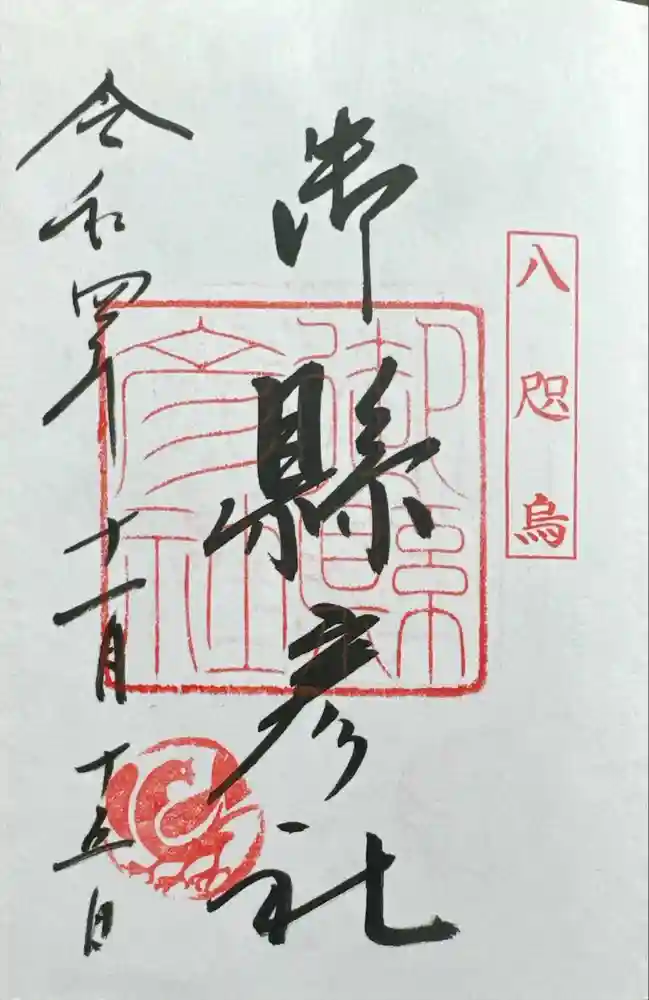 八咫烏
御縣彦社
御縣彦社
令和四年十一月十五日